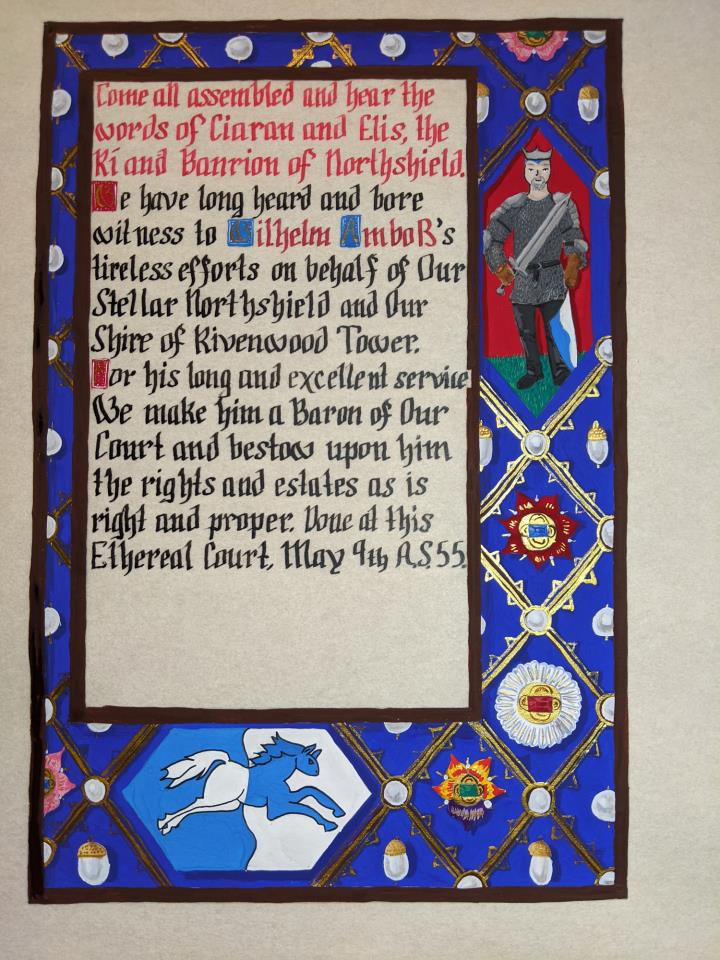 Come all assembled and hear the
words of Ciaran and Elis, the
Rí and Banrion of Northshield.
We have long heard and bore
witness to Wilhelm Amboß's
tireless efforts on behalf of Our
Stellar Northshield and Our
Shire of Rivenwood Tower.
For his long and excellent service
We make him a Baron of Our
Court and bestow upon him
the rights and estates as is
right and proper. Done at this
Ethereal Court, May 9th A.S.55.